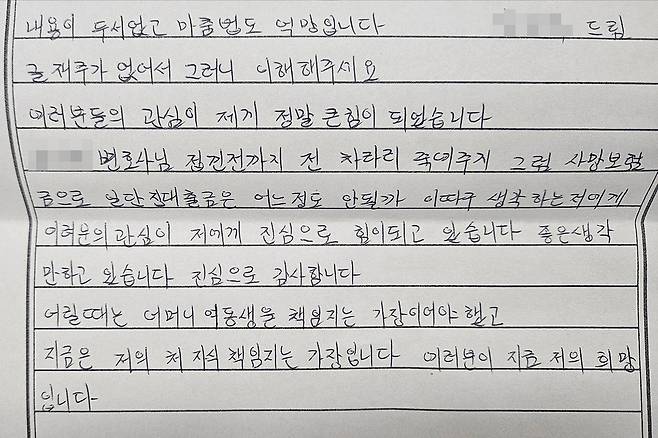 내용이 두서없고 마춤법도 엉망입니다 드림
글재주가 없어서 그러니 이해해주세요
여러분들의 관심이 제게 정말 큰힘이 되었습니다
변호사님 접견전까지 전 차라리 죽여주지 그럼 사망보험
금으로 일단 전대출금은 어느정도 안될까 이따구 생각하는저에게
여려분의관심이 저에게 진심으로 힘이되고 있습니다 좋은생각
만하고 있습니다 진심으로 감사합니다
어릴때는 어머니 여동생을 책임지는 가장이어야 했고
지금은 저의 처 자식 책임지는 가장입니다 여러분이 지금 저의 희망
입니다